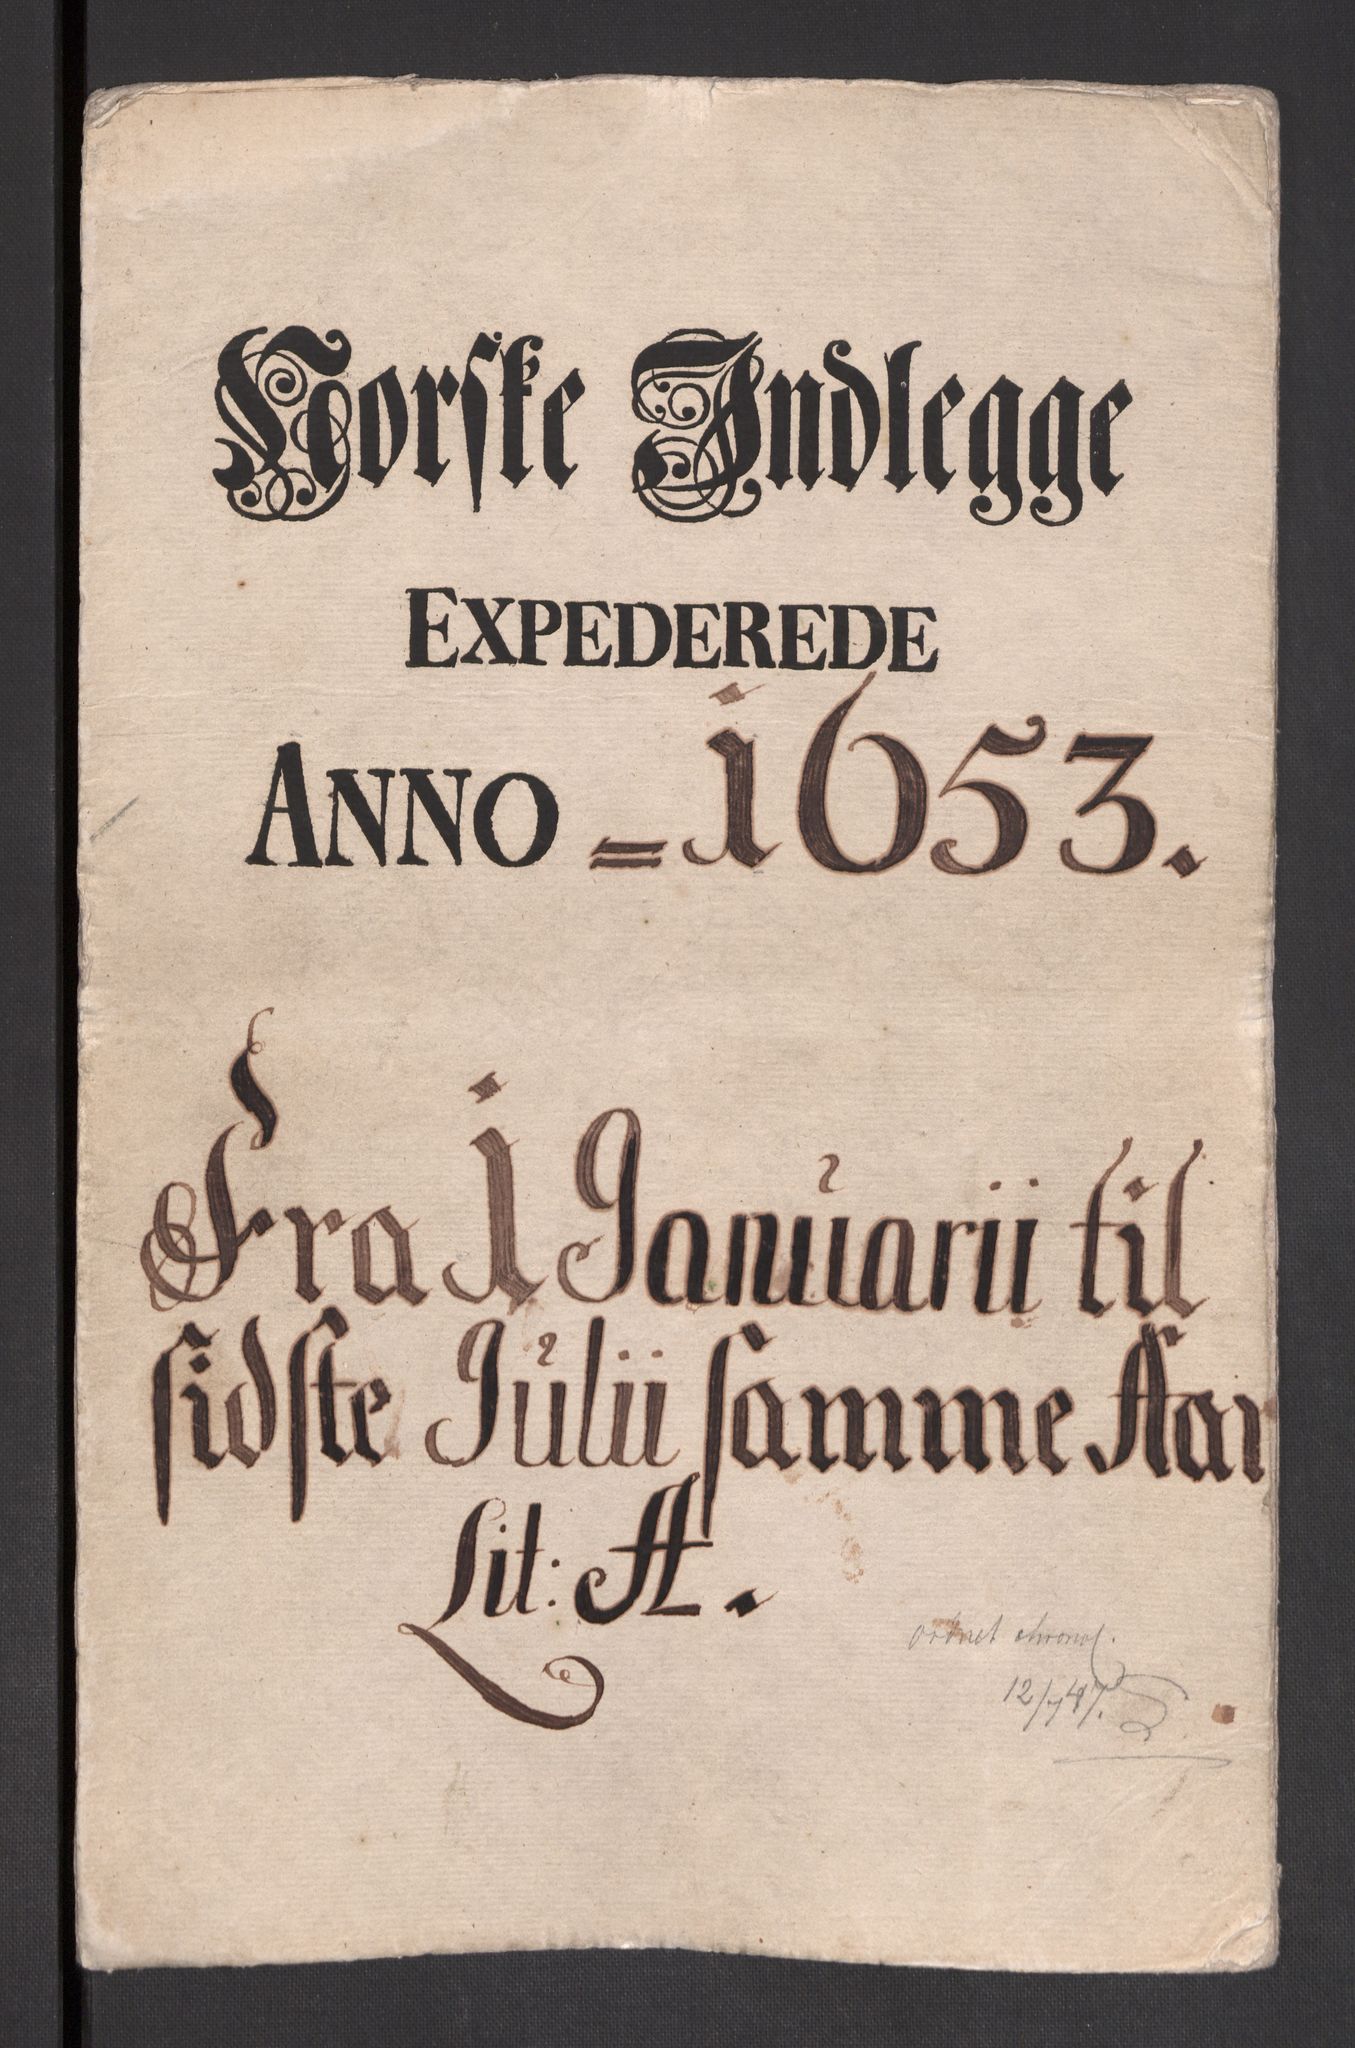 Norske Indlegge
EXPEDEREDE
ANNO = 1653.
Fra 1 Januarii til
sidste Julii samme Aar
Lit: A.
ordnet chronol.